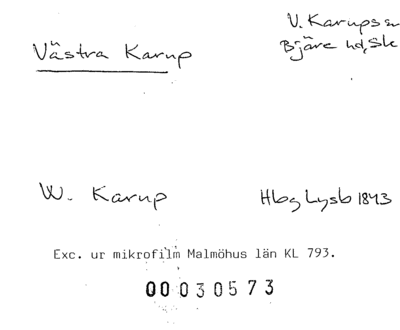 Västra Karup
V. Karups sn
Bjäre hd, Sk
W. Karup
Hbg Lysb 1843
Exc. ur mikrofilm Malmöhus län KL 793.
00 030573